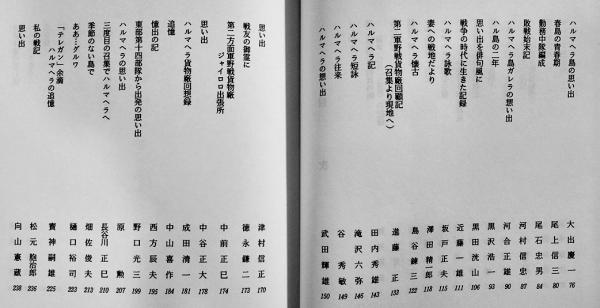 ハルマヘラ島の思い出 大出慶一 76
春島の青春期 尾上信三 80
勤務中隊編成 尾石忠男 84
敗戦始末記 河村信忠 87
ハルマヘラ島ガレラの想い出 河合正雄 90
ハル島の二年 黒沢浩一 93
思い出を俳句風に 黒田洸山 108
戦争の時代に生きた記録 近藤一雄 111
ハルマヘラ詠歌 坂戸正夫 115
妻への戦地だより 澤田精郎 118
ハルマヘラ懐古 島谷錬三 122
第二軍野戦貨物廠回顧記
(召集より現地へ) 進藤正 133
ハルマヘラ記 田内秀雄 143
ハルマヘラ短詠 滝沢六弥 146
ハルマヘラ往来 谷秀敏 149
ハルマヘラの想い出 武田輝雄 150
思い出 津村信正 170
戦友の御霊に 徳永鎌二 173
第二方面軍野戦貨物廠
ジャイロロ出張所 中前正巳 174
思い出 中谷正大 178
ハルマヘラ貨物廠回想録 成田清一 181
追憶 中山喜作 184
憶出の記 西方辰夫 195
東部第十四部隊から出発の思い出 野口光三 199
ハルマヘラの思い出 原勲 207
三度目の召集でハルマヘラへ 長谷川正巳 210
季節のない島で 畑佐俊夫 213
ああ…グルワ 樋口裕司 223
「テレガン」余滴
ハルマヘラの追憶 寶神嗣雄 225
私の戦記 松元胞治郎 236
思い出 向山憲蔵 238